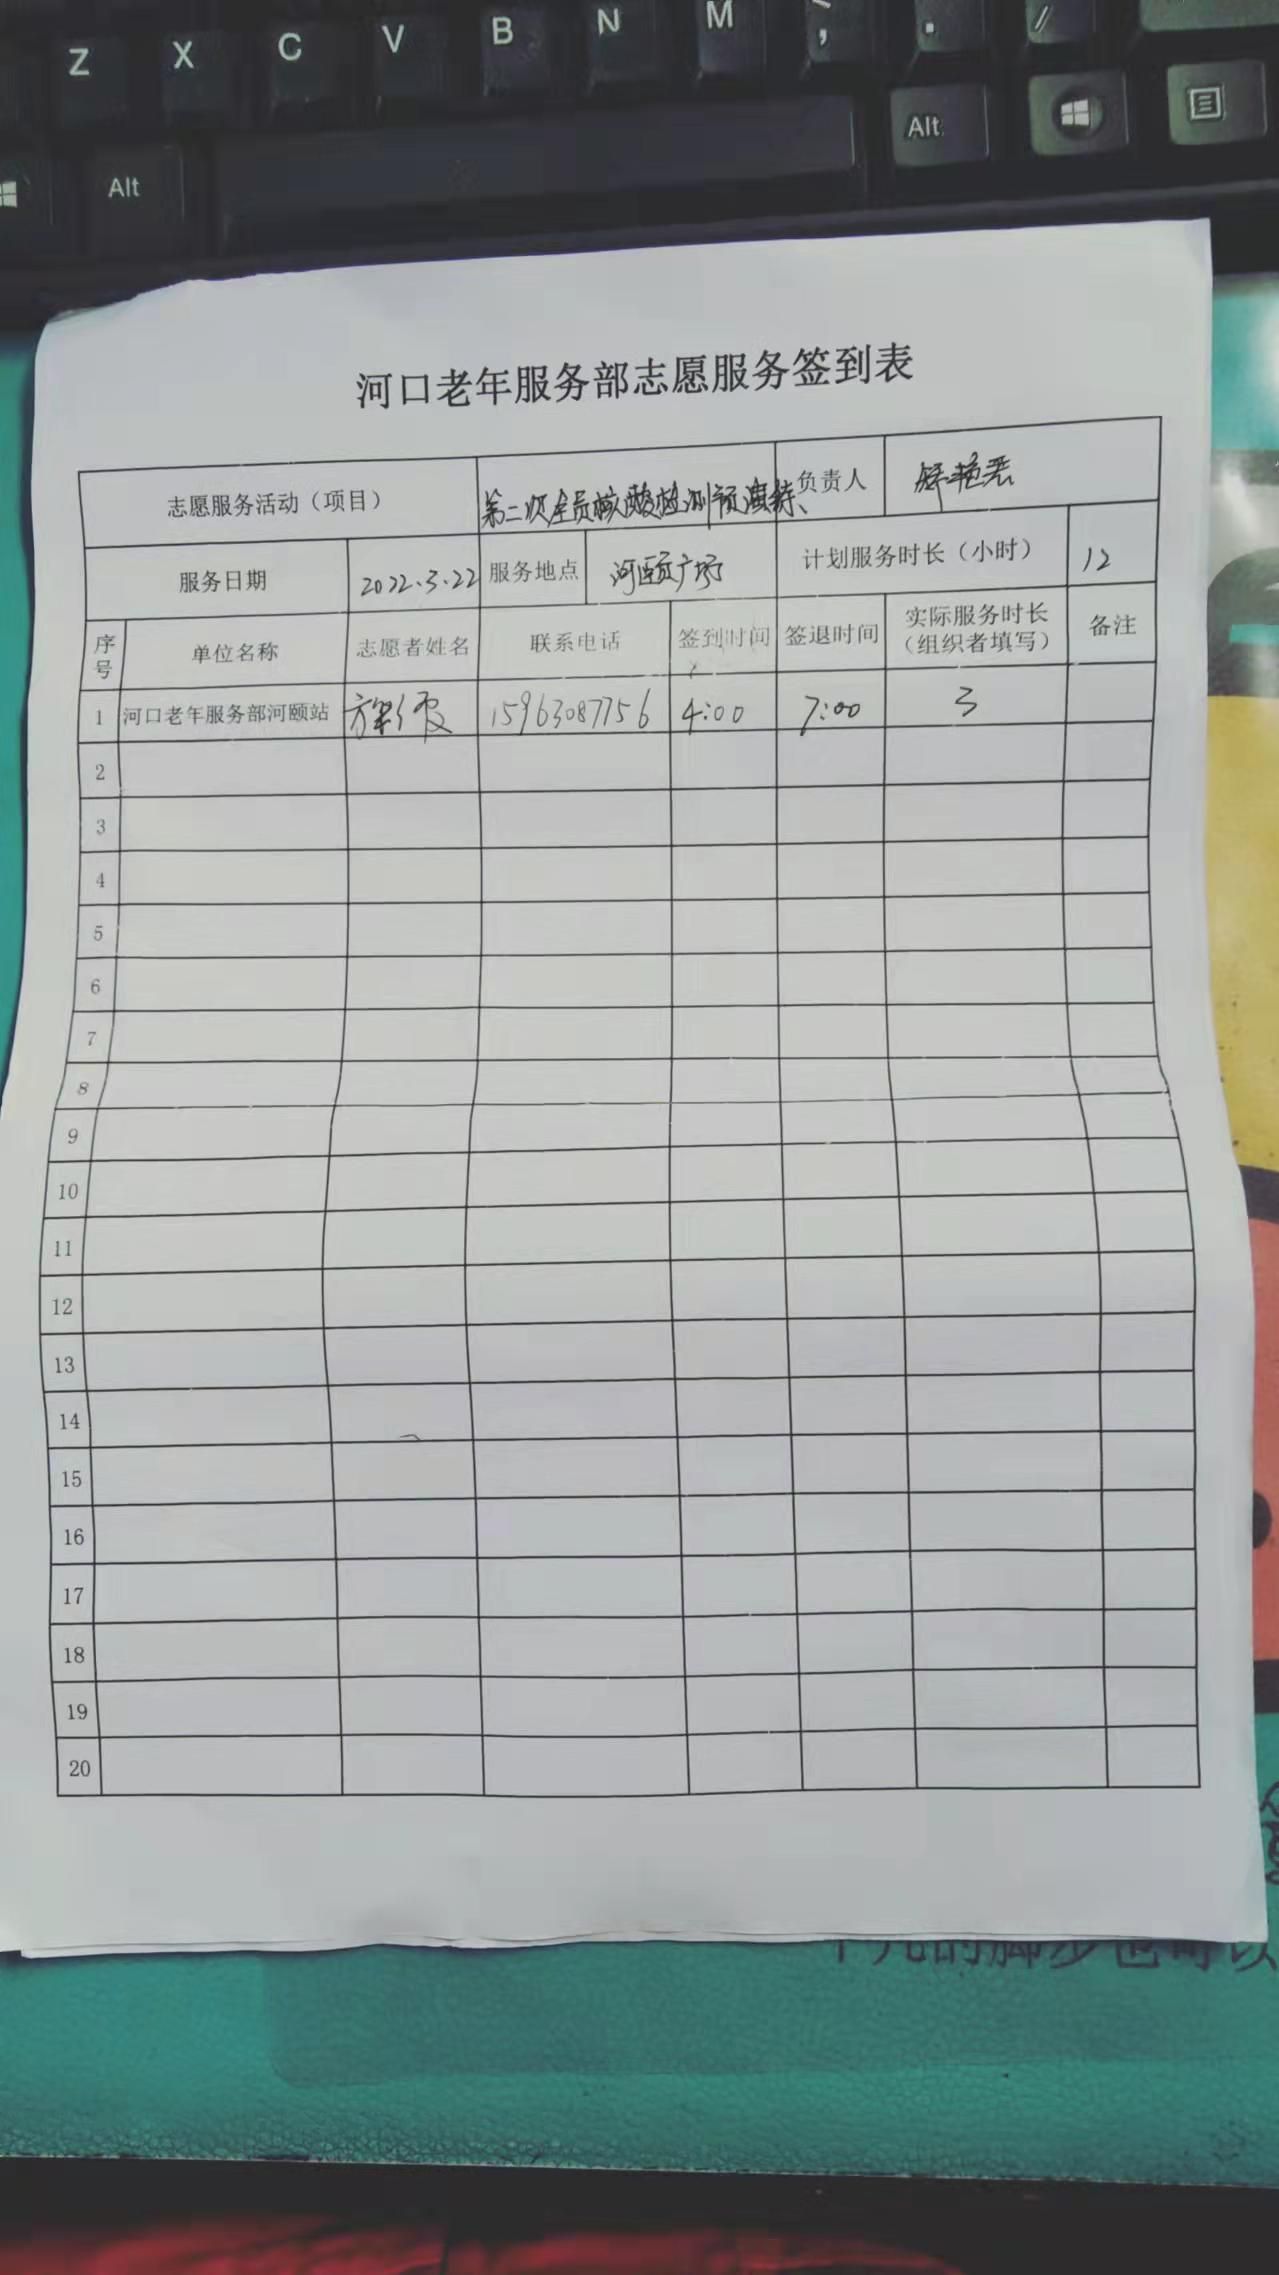 Z X C V B N M , . /
Alt Alt
河口老年服务部志愿服务签到表
志愿服务活动（项目） 第二次全员核酸检测预演练、 负责人
服务日期 2022.3.22 服务地点 河颐广场 计划服务时长（小时） 12
序号 单位名称 志愿者姓名 联系电话 签到时间 签退时间 实际服务时长（组织者填写） 备注
1 河口老年服务部河颐站 15963087756 4:00 7:00 3
2
3
4
5
6
7
8
9
10
11
12
13
14
15
16
17
18
19
20